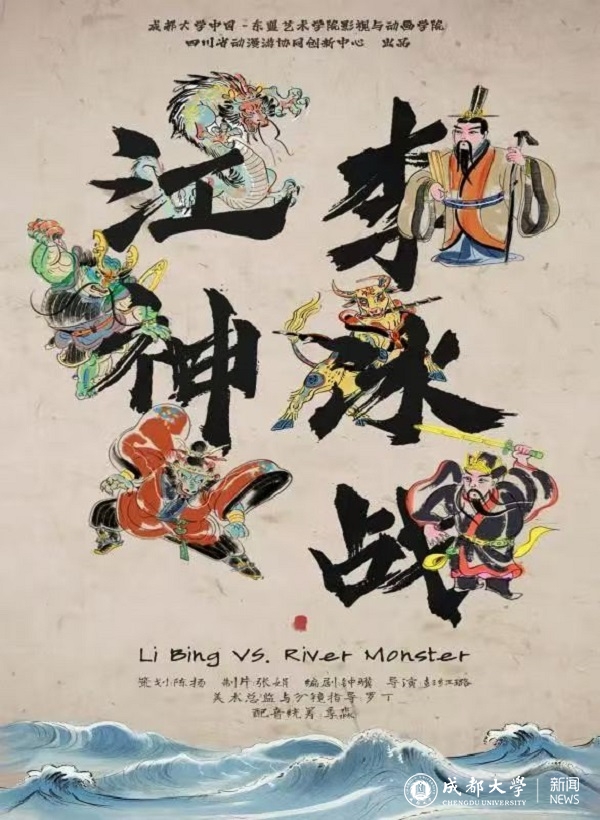 成都大学中国-东盟艺术学院影视与动画学院
四川省动漫游协同创新中心 出品
李冰战
江神
Li Bing VS. River Monster
策划陈扬 制片张娟 编剧钟骥 导演彭红璐
美术总监与分镜指导罗丁
配音统筹李淼
成都大学
CHENGDU UNIVERSITY
新闻
NEWS